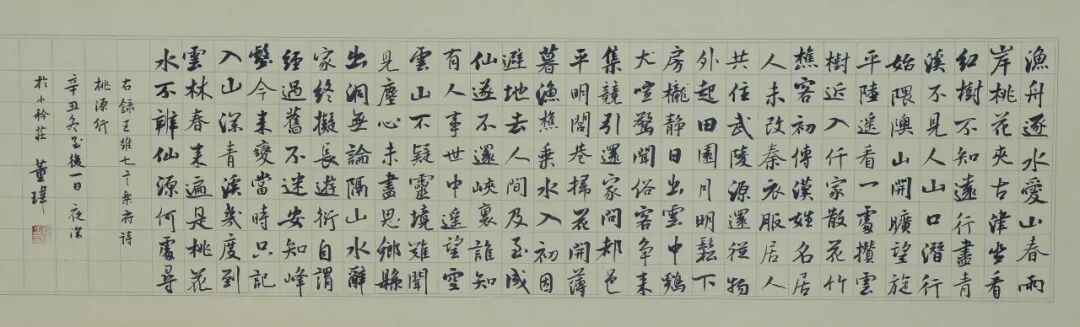 漁舟逐水愛山春兩
岸桃花夾古津坐看
紅樹不知遠行盡青
溪不見人山口潛行
始隈隩山開曠望旋
平陸遙看一處攢雲
樹近入仟家散花竹
樵客初傳漢姓名居
人未改秦衣服居人
共住武陵源還從物
外起田園月明鬆下
房櫳靜日出雲中鷄
犬喧驚聞俗客爭来
集競引還家問都邑
平明閭巷掃花開薄
暮漁樵乘水入初因
避地去人間及至成
仙遂不還峽裏誰知
有人事世中遙望空
雲山不疑靈境難聞
見塵心未盡思鄉縣
出洞無論隔山水辭
家終擬長遊衍自謂
經過舊不迷安知峰
壑今来變當時只記
入山深青溪幾度到
雲林春来遍是桃花
水不辨仙源何處尋
右錄王維七言樂府詩
桃源行
辛丑冬至後一日夜深
於小衿莊 董瑋